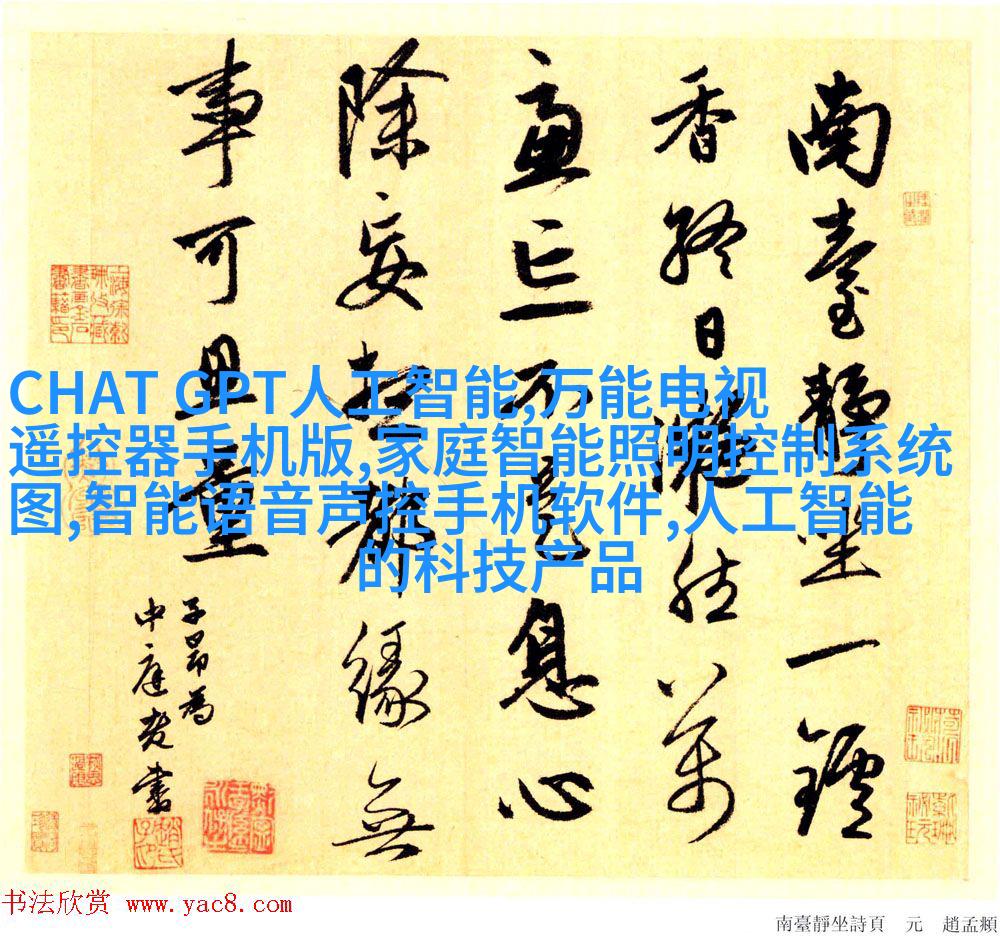 南臺靜坐一鑪
香終日凝然萬
慮亡不是息心
除妄想都緣無
事可思量
子昂為
中庭老書
CHAT GPT人工智能,万能电视
遥控器手机版,家庭智能照明控制系统
图,智能语音声控手机软件,人工智能
的科技产品
书法欣赏 www.yac8.com
南臺靜坐詩頁 元 趙孟頫